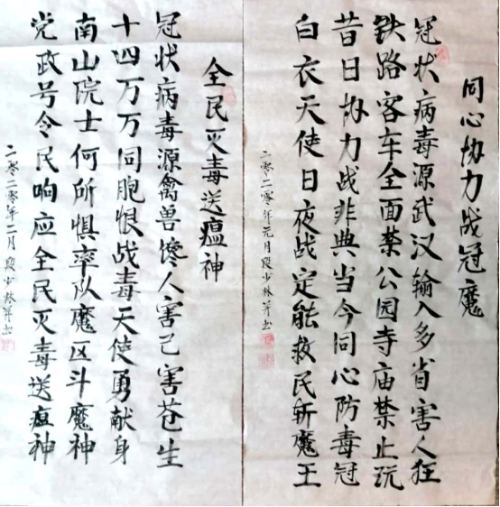 同心协力战冠魔
冠状病毒源武汉输入多省害人狂
铁路客车全面禁公园寺庙禁止玩
昔日协力战非典当今同心防毒冠
白衣天使日夜战定能救民斩魔王
二零二零年元月段少林并书
全民灭毒送瘟神
冠状病毒源禽兽馋人害己害苍生
十四万万同胞恨战毒天使勇献身
南山院士何所惧率队魔区斗魔神
党政号令民响应全民灭毒送瘟神
二零二零年二月段少林并书